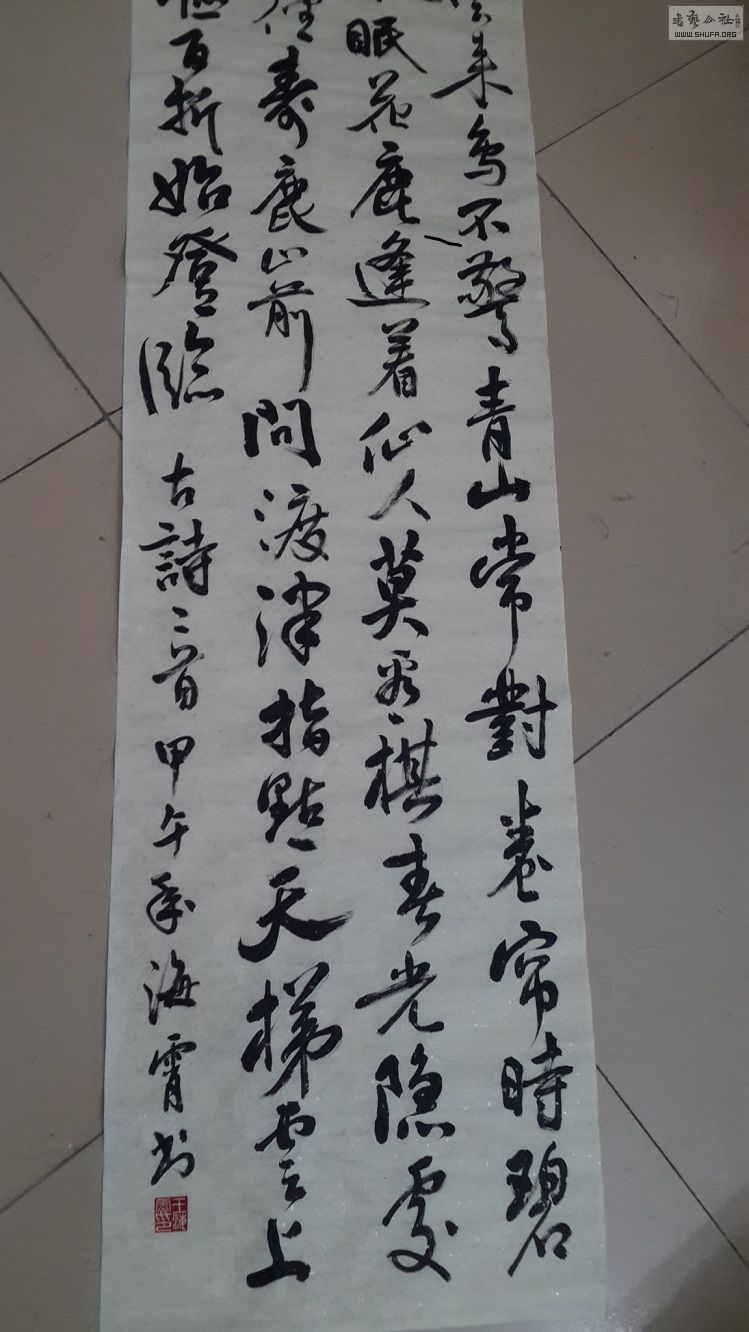 书艺公社
WWW.SHUFA.ORG
来鳥不驚青山常對卷帘時碧
眠花鹿逢着仙人莫看棋春光隐處
壽鹿山前問渡津指點天梯雲上
百折始登臨 古詩三首 甲午年海霄书